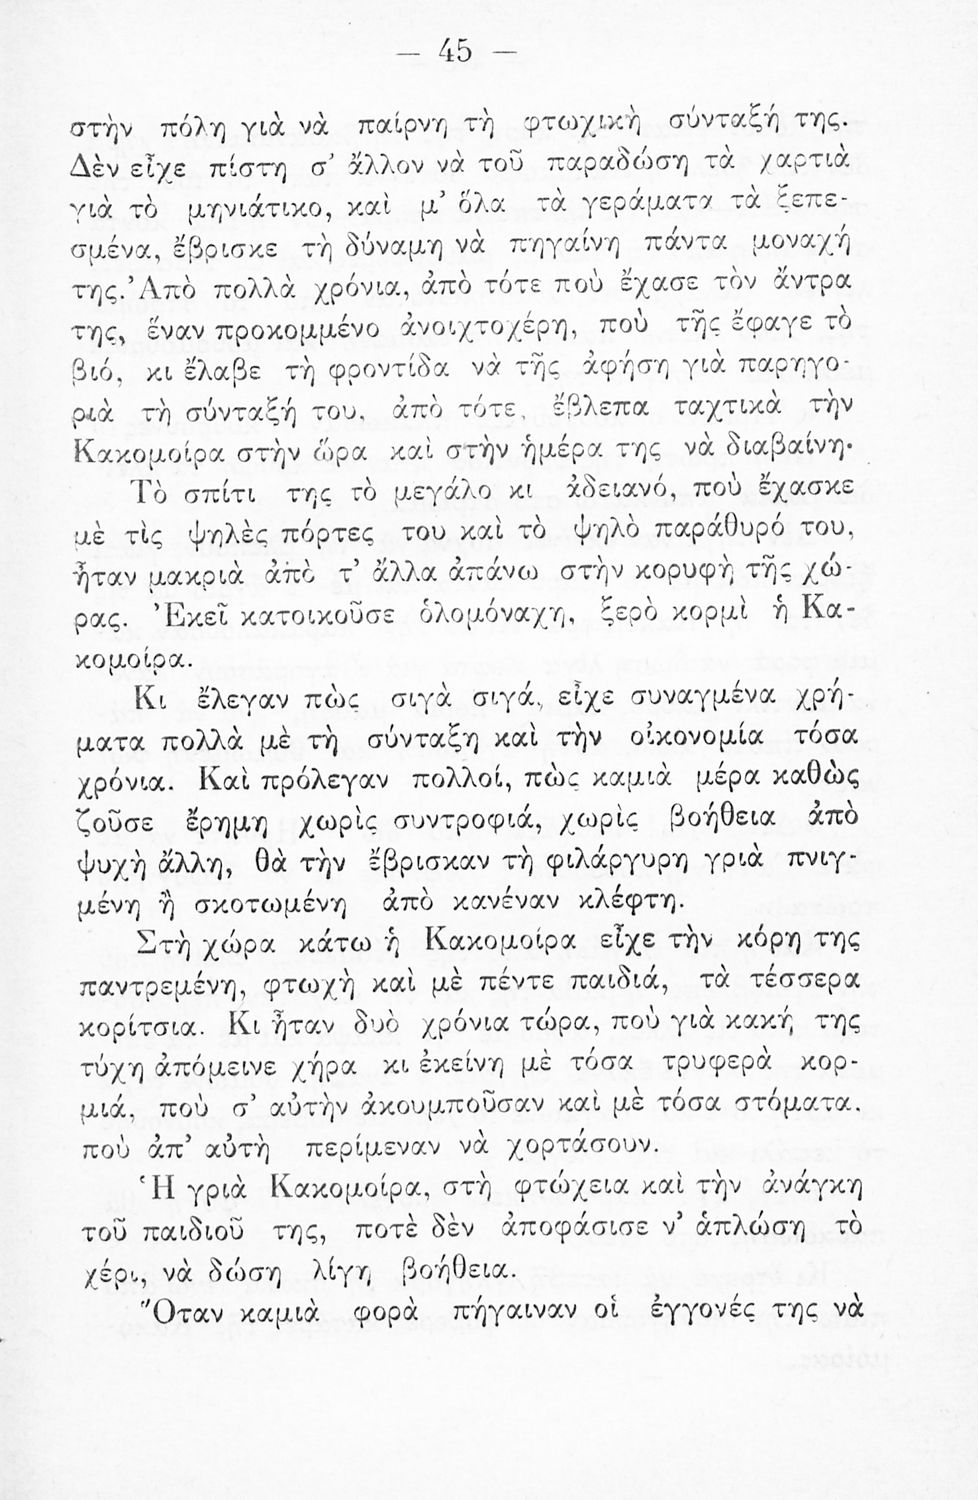 — 45 —
στὴν πόλη γιὰ νὰ παίρνη τὴ φτωχικὴ σύνταξή της.
Δὲν εἶχε πίστη σ' ἄλλον νὰ τοῦ παραδώση τὰ χαρτιὰ
γιὰ τὸ μηνιάτικο, καὶ μ' ὅλα τὰ γεράματα τὰ ξεπε-
σμένα, ἔβρισκε τὴ δύναμη νὰ πηγαίνη πάντα μοναχή
της. Ἀπὸ πολλὰ χρόνια, ἀπὸ τότε ποὺ ἔχασε τὸν ἄντρα
της, ἕναν προκομμένο ἀνοιχτοχέρη, ποὺ τῆς ἔφαγε τὸ
βιό, κι ἔλαβε τὴ φροντίδα νὰ τῆς ἀφήση γιὰ παρηγο-
ριὰ τὴ σύνταξή του, ἀπὸ τότε, ἔβλεπα ταχτικὰ τὴν
Κακομοίρα στὴν ὥρα καὶ στὴν ἡμέρα της νὰ διαβαίνη·
Τὸ σπίτι της τὸ μεγάλο κι ἀδειανό, ποὺ ἔχασκε
μὲ τὶς ψηλὲς πόρτες του καὶ τὸ ψηλὸ παράθυρό του,
ἦταν μακριὰ ἀπὸ τ' ἄλλα ἀπάνω στὴν κορυφὴ τῆς χώ-
ρας. Ἐκεῖ κατοικοῦσε ὁλομόναχη, ξερὸ κορμὶ ἡ Κα-
κομοίρα.
Κι ἔλεγαν πὼς σιγὰ σιγά, εἶχε συναγμένα χρή-
ματα πολλὰ μὲ τὴ σύνταξη καὶ τὴν οἰκονομία τόσα
χρόνια. Καὶ πρόλεγαν πολλοί, πὼς καμιὰ μέρα καθὼς
ζοῦσε ἔρημη χωρὶς συντροφιά, χωρὶς βοήθεια ἀπὸ
ψυχὴ ἄλλη, θὰ τὴν ἔβρισκαν τὴ φιλάργυρη γριὰ πνιγ-
μένη ἢ σκοτωμένη ἀπὸ κανέναν κλέφτη.
Στὴ χώρα κάτω ἡ Κακομοίρα εἶχε τὴν κόρη της
παντρεμένη, φτωχὴ καὶ μὲ πέντε παιδιά, τὰ τέσσερα
κορίτσια. Κι ἦταν δυὸ χρόνια τώρα, ποὺ γιὰ κακή της
τύχη ἀπόμεινε χήρα κι ἐκείνη μὲ τόσα τρυφερὰ κορ-
μιά, ποὺ σ' αὐτὴν ἀκουμποῦσαν καὶ μὲ τόσα στόματα.
ποὺ ἀπ' αὐτὴ περίμεναν νὰ χορτάσουν.
Ἡ γριὰ Κακομοίρα, στὴ φτώχεια καὶ τὴν ἀνάγκη
τοῦ παιδιοῦ της, ποτὲ δὲν ἀποφάσισε ν' ἁπλώση τὸ
χέρι, νὰ δώση λίγη βοήθεια.
Ὅταν καμιὰ φορὰ πήγαιναν οἱ ἐγγονές της νὰ